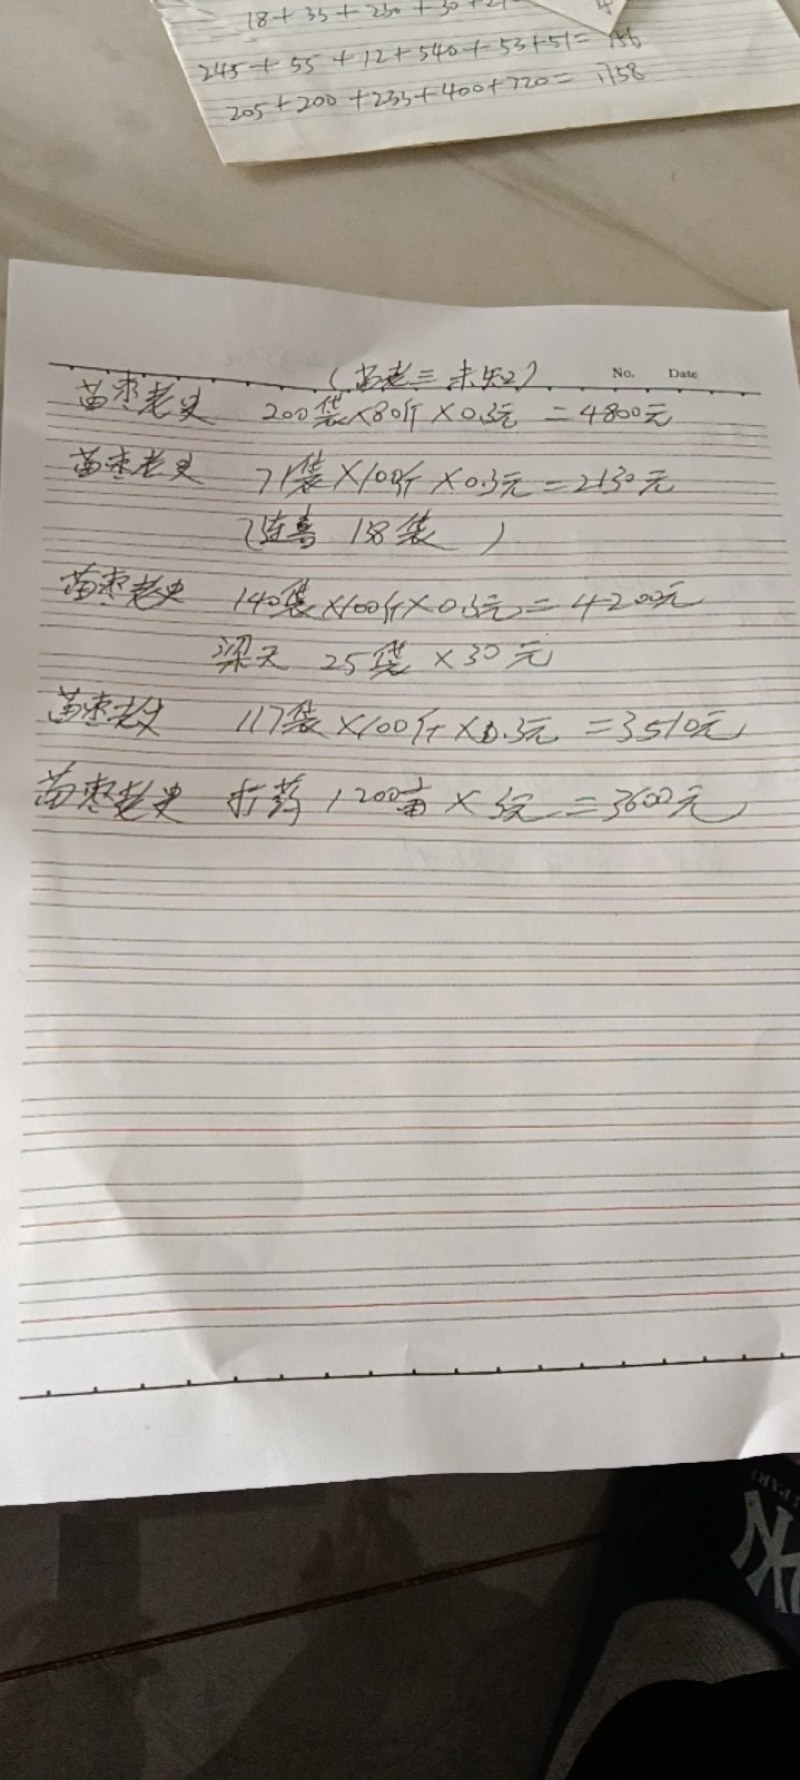 18+35+230+30+21
245+55+12+540+53+51=956
205+200+233+400+720=1758
No. Date
苗枣老史 200袋×80斤×0.3元=4800元
苗枣老史 71袋×100斤×0.3元=2130元
138袋)
苗枣老史 140袋×100斤×0.3元=4200元
梁天 25袋×30元
苗枣老史 117袋×100斤×0.3元=3510元
苗枣老史 打药1200亩×3元=3600元